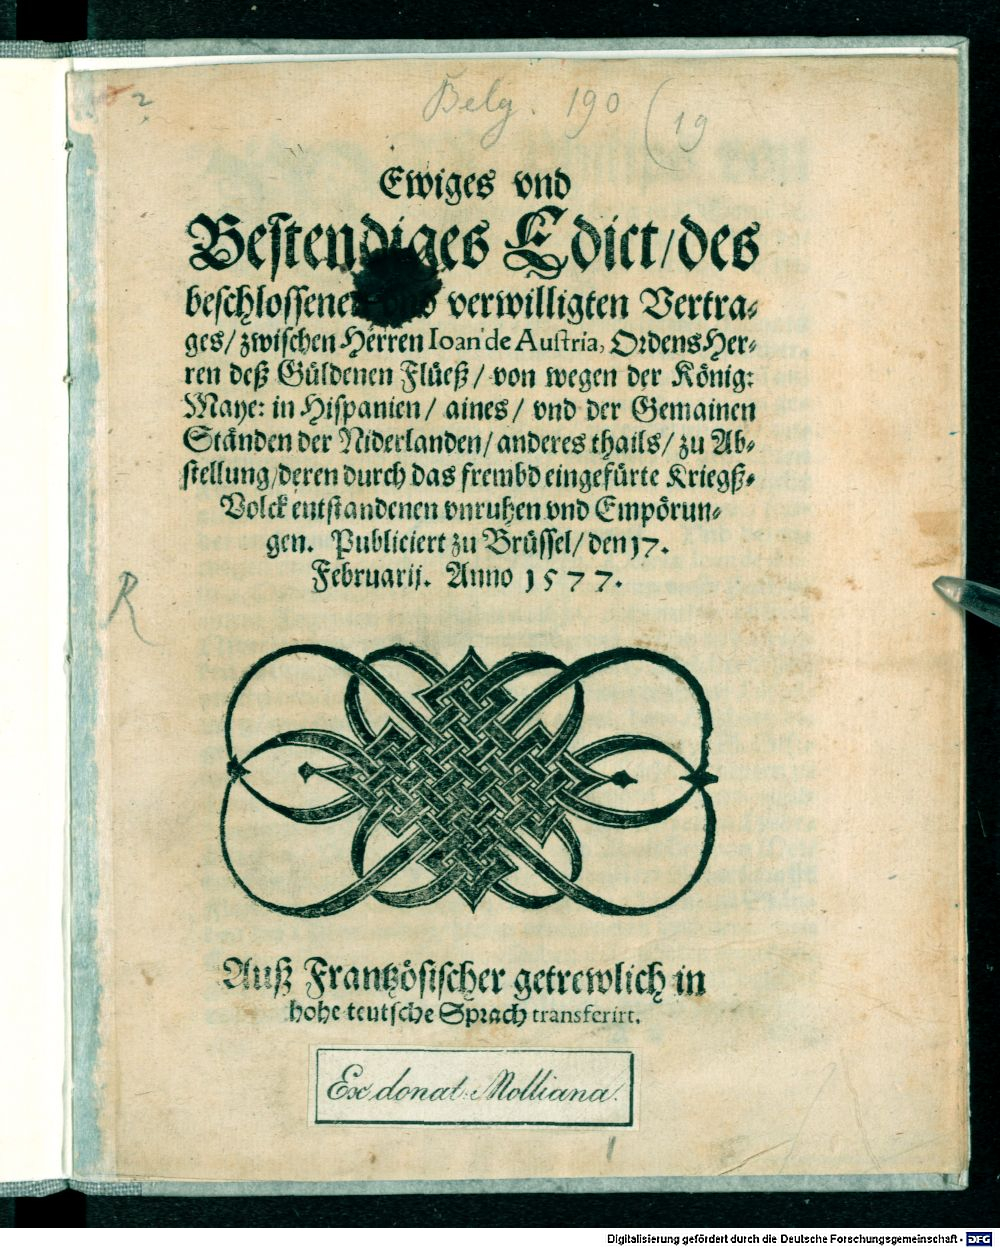 2
Belg. 190 (19
Ewiges vnd
Bestendiges Edict/des
beschlossenen vnd verwilligten Vertra-
ges/ zwischen Herren Ioan de Austria, Ordens Her-
ren deß Güldenen Flüeß/ von wegen der König:
Maye: in Hispanien/ aines/ vnd der Gemainen
Ständen der Niderlanden/ anderes thails/ zu Ab-
stellung/deren durch das frembd eingefürte Kriegß-
Volck entstandenen vnruhen vnd Empörun-
gen. Publiciert zu Brüssel/ den 17.
Februarij. Anno 1577.
R
Auß Frantzösischer getrewlich in
hohe teutsche Sprach transferirt.
Ex donat: Molliana.
1
Digitalisierung gefördert durch die Deutsche Forschungsgemeinschaft - DFG